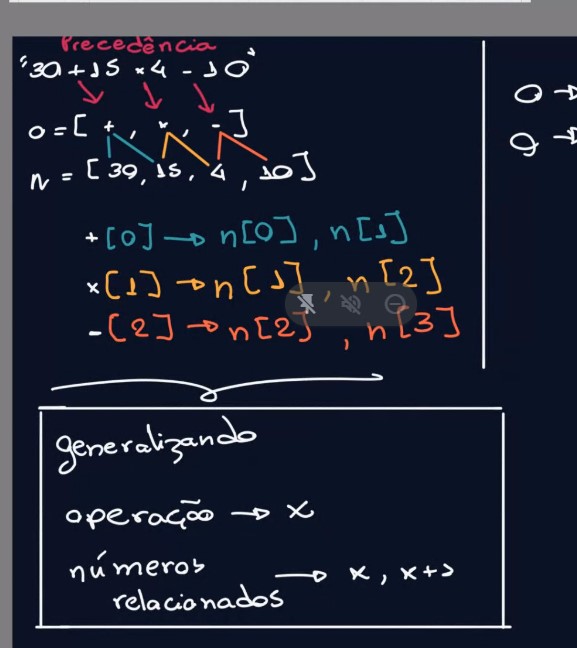 Precedência
"30 + 15 × 4 - 10"
o = [ + , × , - ]
n = [ 30, 15, 4 , 10 ]
+ [0] → n[0] , n[1]
× [1] → n[1] , n[2]
- [2] → n[2] , n[3]
o →
g →
generalizando
operação → x
números
relacionados → x , x+1